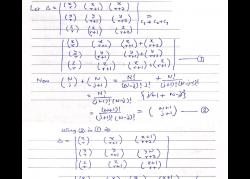 Let Δ = | (x r) (x r+1) (x r+2) |
| (y r) (y r+1) (y r+2) | = C₃ + C₂
| (z r) (z r+1) (z r+2) |
| (x r) (x r+1) (x r+1)+(x r+2) |
| (y r) (y r+1) (y r+1)+(y r+2) |
| (z r) (z r+1) (z r+1)+(z r+2) | — ①
Now (N j) + (N j+1) = N!/((N-j)! j!) + N!/((j+1)!(N-j-1)!)
= N!/((j+1)!(N-j)!) {j+1 + N-j}
= (N+1)!/((j+1)!(N-j)!) = (N+1 j+1) — ②
using ② in ①
Δ = | (x r) (x r+1) (x+1 r+2) |
| (y r) (y r+1) (y+1 r+2) |
| (z r) (z r+1) (z+1 r+2) |